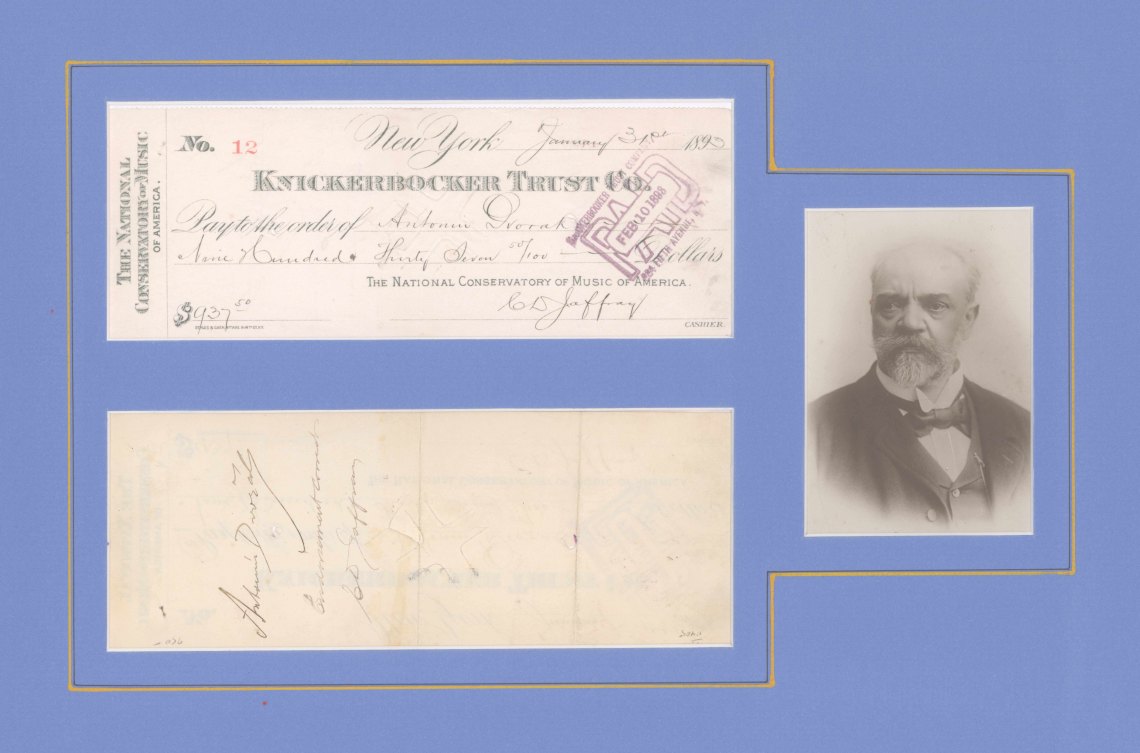 THE NATIONAL
CONSERVATORY OF MUSIC
OF AMERICA.
No. 12
New York January 31st 1893
KNICKERBOCKER TRUST CO.
Pay to the order of Antonin Dvorak
Nine Hundred Thirty Seven 50/100 Dollars
THE NATIONAL CONSERVATORY OF MUSIC OF AMERICA.
$937 50
C D Jaffray
CASHIER.
KNICKERBOCKER
PAID
FEB 10 1893
234 FIFTH AVENUE, N.Y.
Antonín Dvořák
Endorsement Correct
C D Jaffray